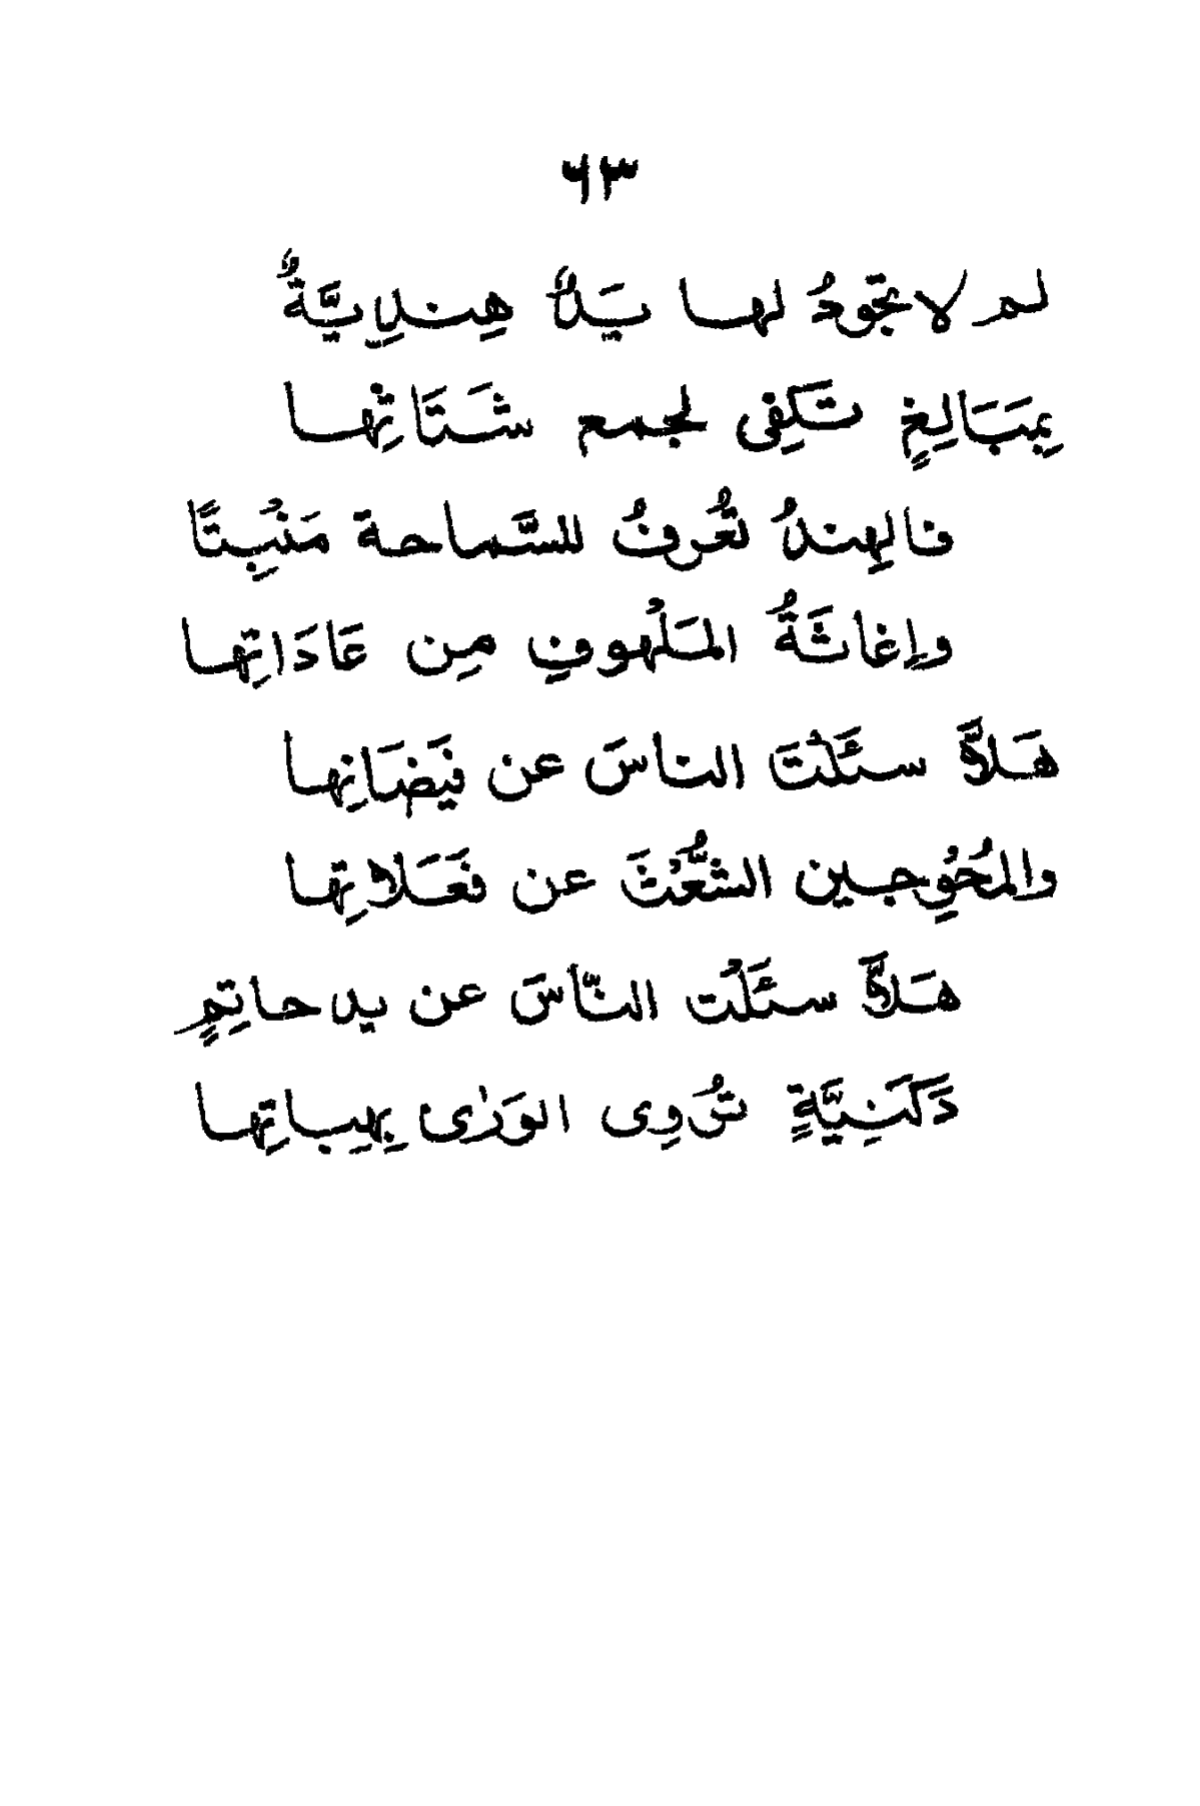 ٦٣
لم لا تجودُ لها يَدٌ هِنديَّةٌ
بِمَبَالِغٍ تَكفِى لجمع شَتَاتِها
فالهِندُ تُعْرفُ للسَّماحة مَنْبِتًا
وإغاثَةُ المَلْهوفِ مِن عَادَاتِها
هَلاَّ سئَلْتَ الناسَ عن فَيَضَانِها
والمُحْوِجين الشُّعْثَ عن فَعَلاتِها
هَلاَّ سئَلْت النّاسَ عن يد حاتِمٍ
دَكَنِيَّةٍ تُروِى الوَرٰى بِهِباتِها